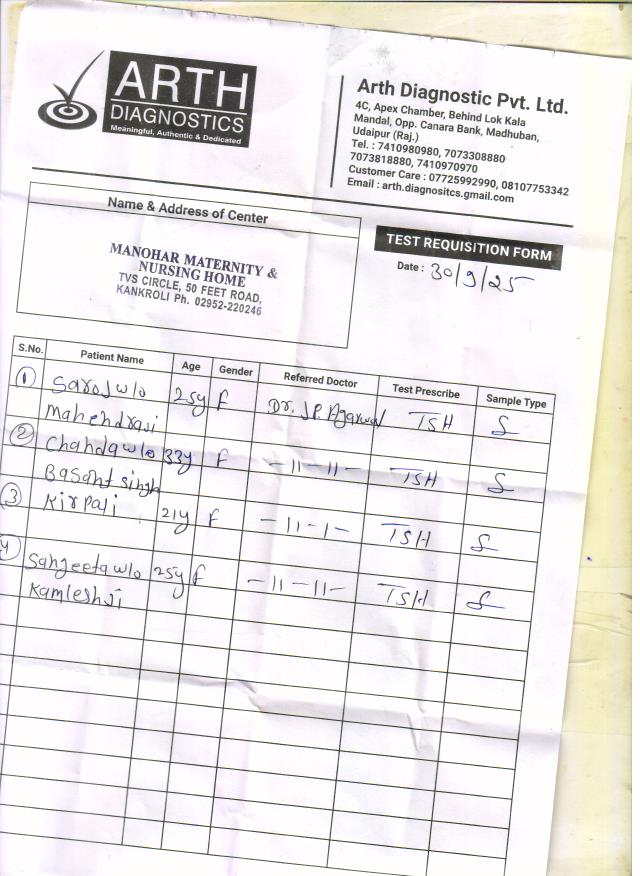 ARTH
DIAGNOSTICS
Meaningful, Authentic & Dedicated
Arth Diagnostic Pvt. Ltd.
4C, Apex Chamber, Behind Lok Kala
Mandal, Opp. Canara Bank, Madhuban,
Udaipur (Raj.)
Tel. : 7410980980, 7073308880
7073818880, 7410970970
Customer Care : 07725992990, 08107753342
Email : arth.diagnositcs.gmail.com
Name & Address of Center
MANOHAR MATERNITY &
NURSING HOME
TVS CIRCLE, 50 FEET ROAD,
KANKROLI Ph. 02952-220246
TEST REQUISITION FORM
Date : 30/9/25
S.No. Patient Name Age Gender Referred Doctor Test Prescribe Sample Type
1 Saroj w/o 25y F Dr. J.P. Agarwal TSH S
Mahendraji
2 Chanda w/o 33y F -11-11- TSH S
Basant singh
3 Kirpali 21y F -11-1- TSH S
4 Sangeeta w/o 25y F -11-11- TSH S
Kamleshji